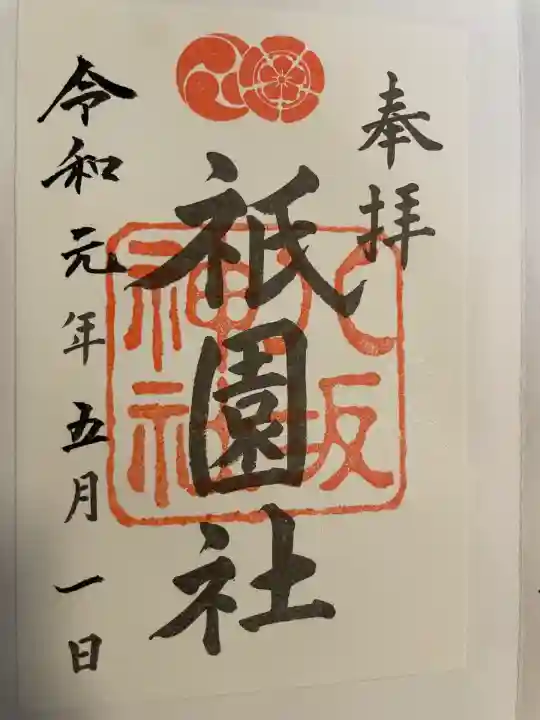 奉拝
祇園社
八坂神社
令和元年五月一日